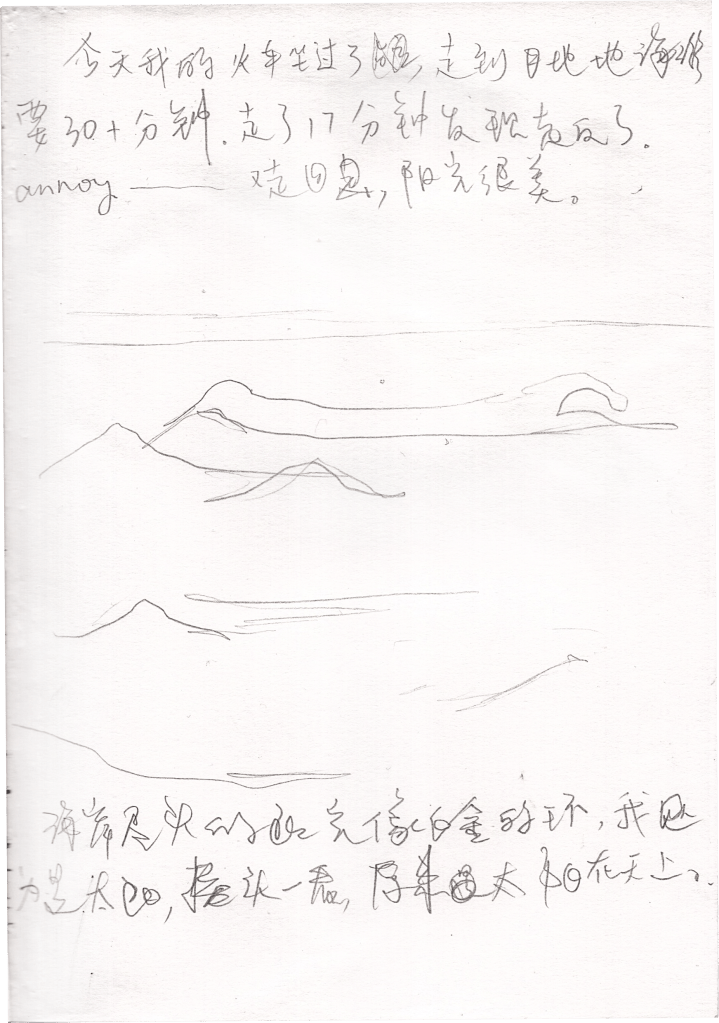 今天我的火车坐过了,走到目地地海滩
要30+分钟.走了17分钟发现走反了.
annoy —— 又走回,阳光很美。
海岸尽头的光像白金的环,我以
为是太阳,抬头一看,原来太阳在天上。